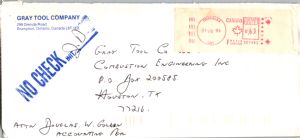 GRAY TOOL COMPANY
299 Orenda Road
Brampton, Ontario, Canada
NO CHECK
CANADA
GRAY TOOL CO
COMBUSTION ENGINEERING INC
P.O. BOX 200585
HOUSTON, TX
77216
ATTN DOUGLAS W. GREEN
ACCOUNTING